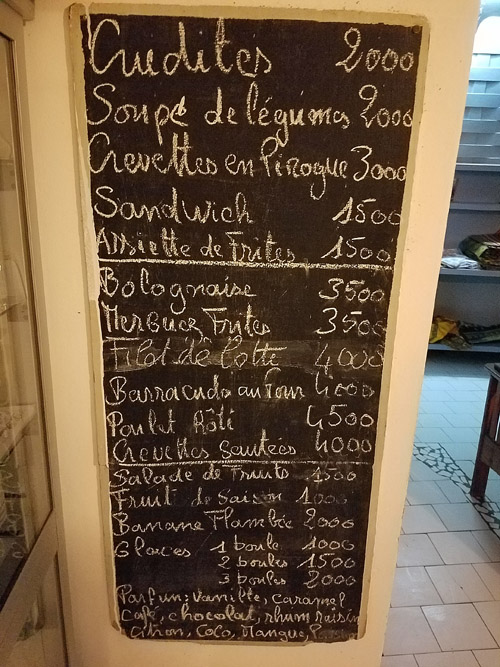 Crudités 2000
Soupe de légumes 2000
Crevettes en Pirogue 3000
Sandwich 1500
Assiette de Frites 1500
Bolognaise 3500
Merguez Frites 3500
Filet de Lotte 4000
Barracuda au Four 4000
Poulet Rôti 4500
Crevettes Sautées 4000
Salade de Fruits 1500
Fruit de Saison 1000
Banane Flambée 2000
Glaces 1 boule 1000
2 boules 1500
3 boules 2000
Parfum: vanille, caramel
Café, chocolat, rhum raisin
Citron, Coco, Mangue,